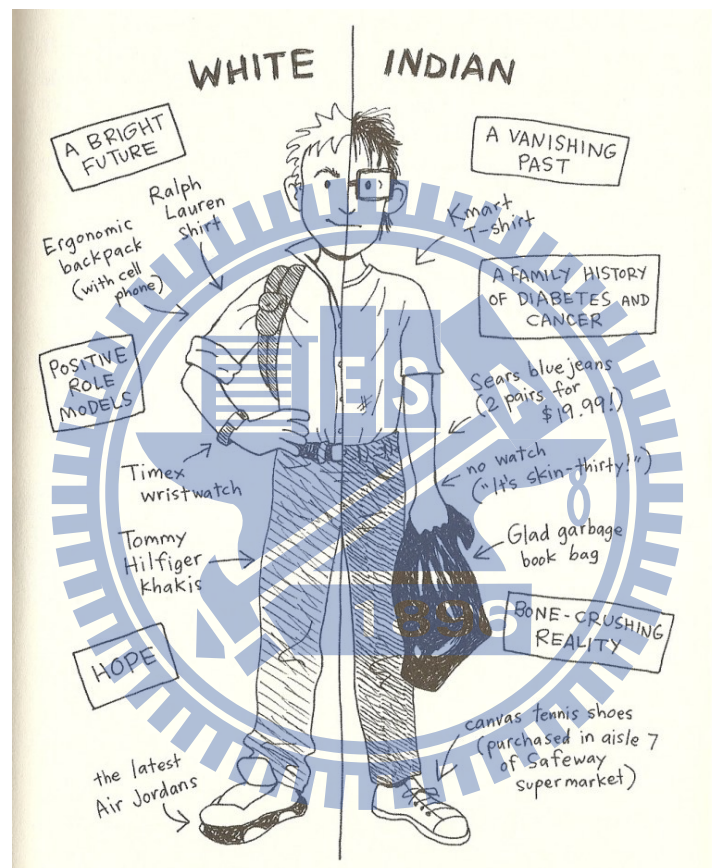 WHITE
INDIAN
A BRIGHT
FUTURE
Ralph
Lauren
Shirt
Ergonomic
backpack
(with cell
phone)
POSITIVE
ROLE
MODELS
Timex
wristwatch
Tommy
Hilfiger
Khakis
HOPE
the latest
Air Jordans
A VANISHING
PAST
Kmart
T-shirt
A FAMILY HISTORY
OF DIABETES AND
CANCER
Sears blue jeans
(2 pairs for
$19.99!)
no watch
("It's skin-thirty!")
Glad garbage
book bag
BONE-CRUSHING
REALITY
canvas tennis shoes
(purchased in aisle 7
of Safeway
supermarket)
ES
1896